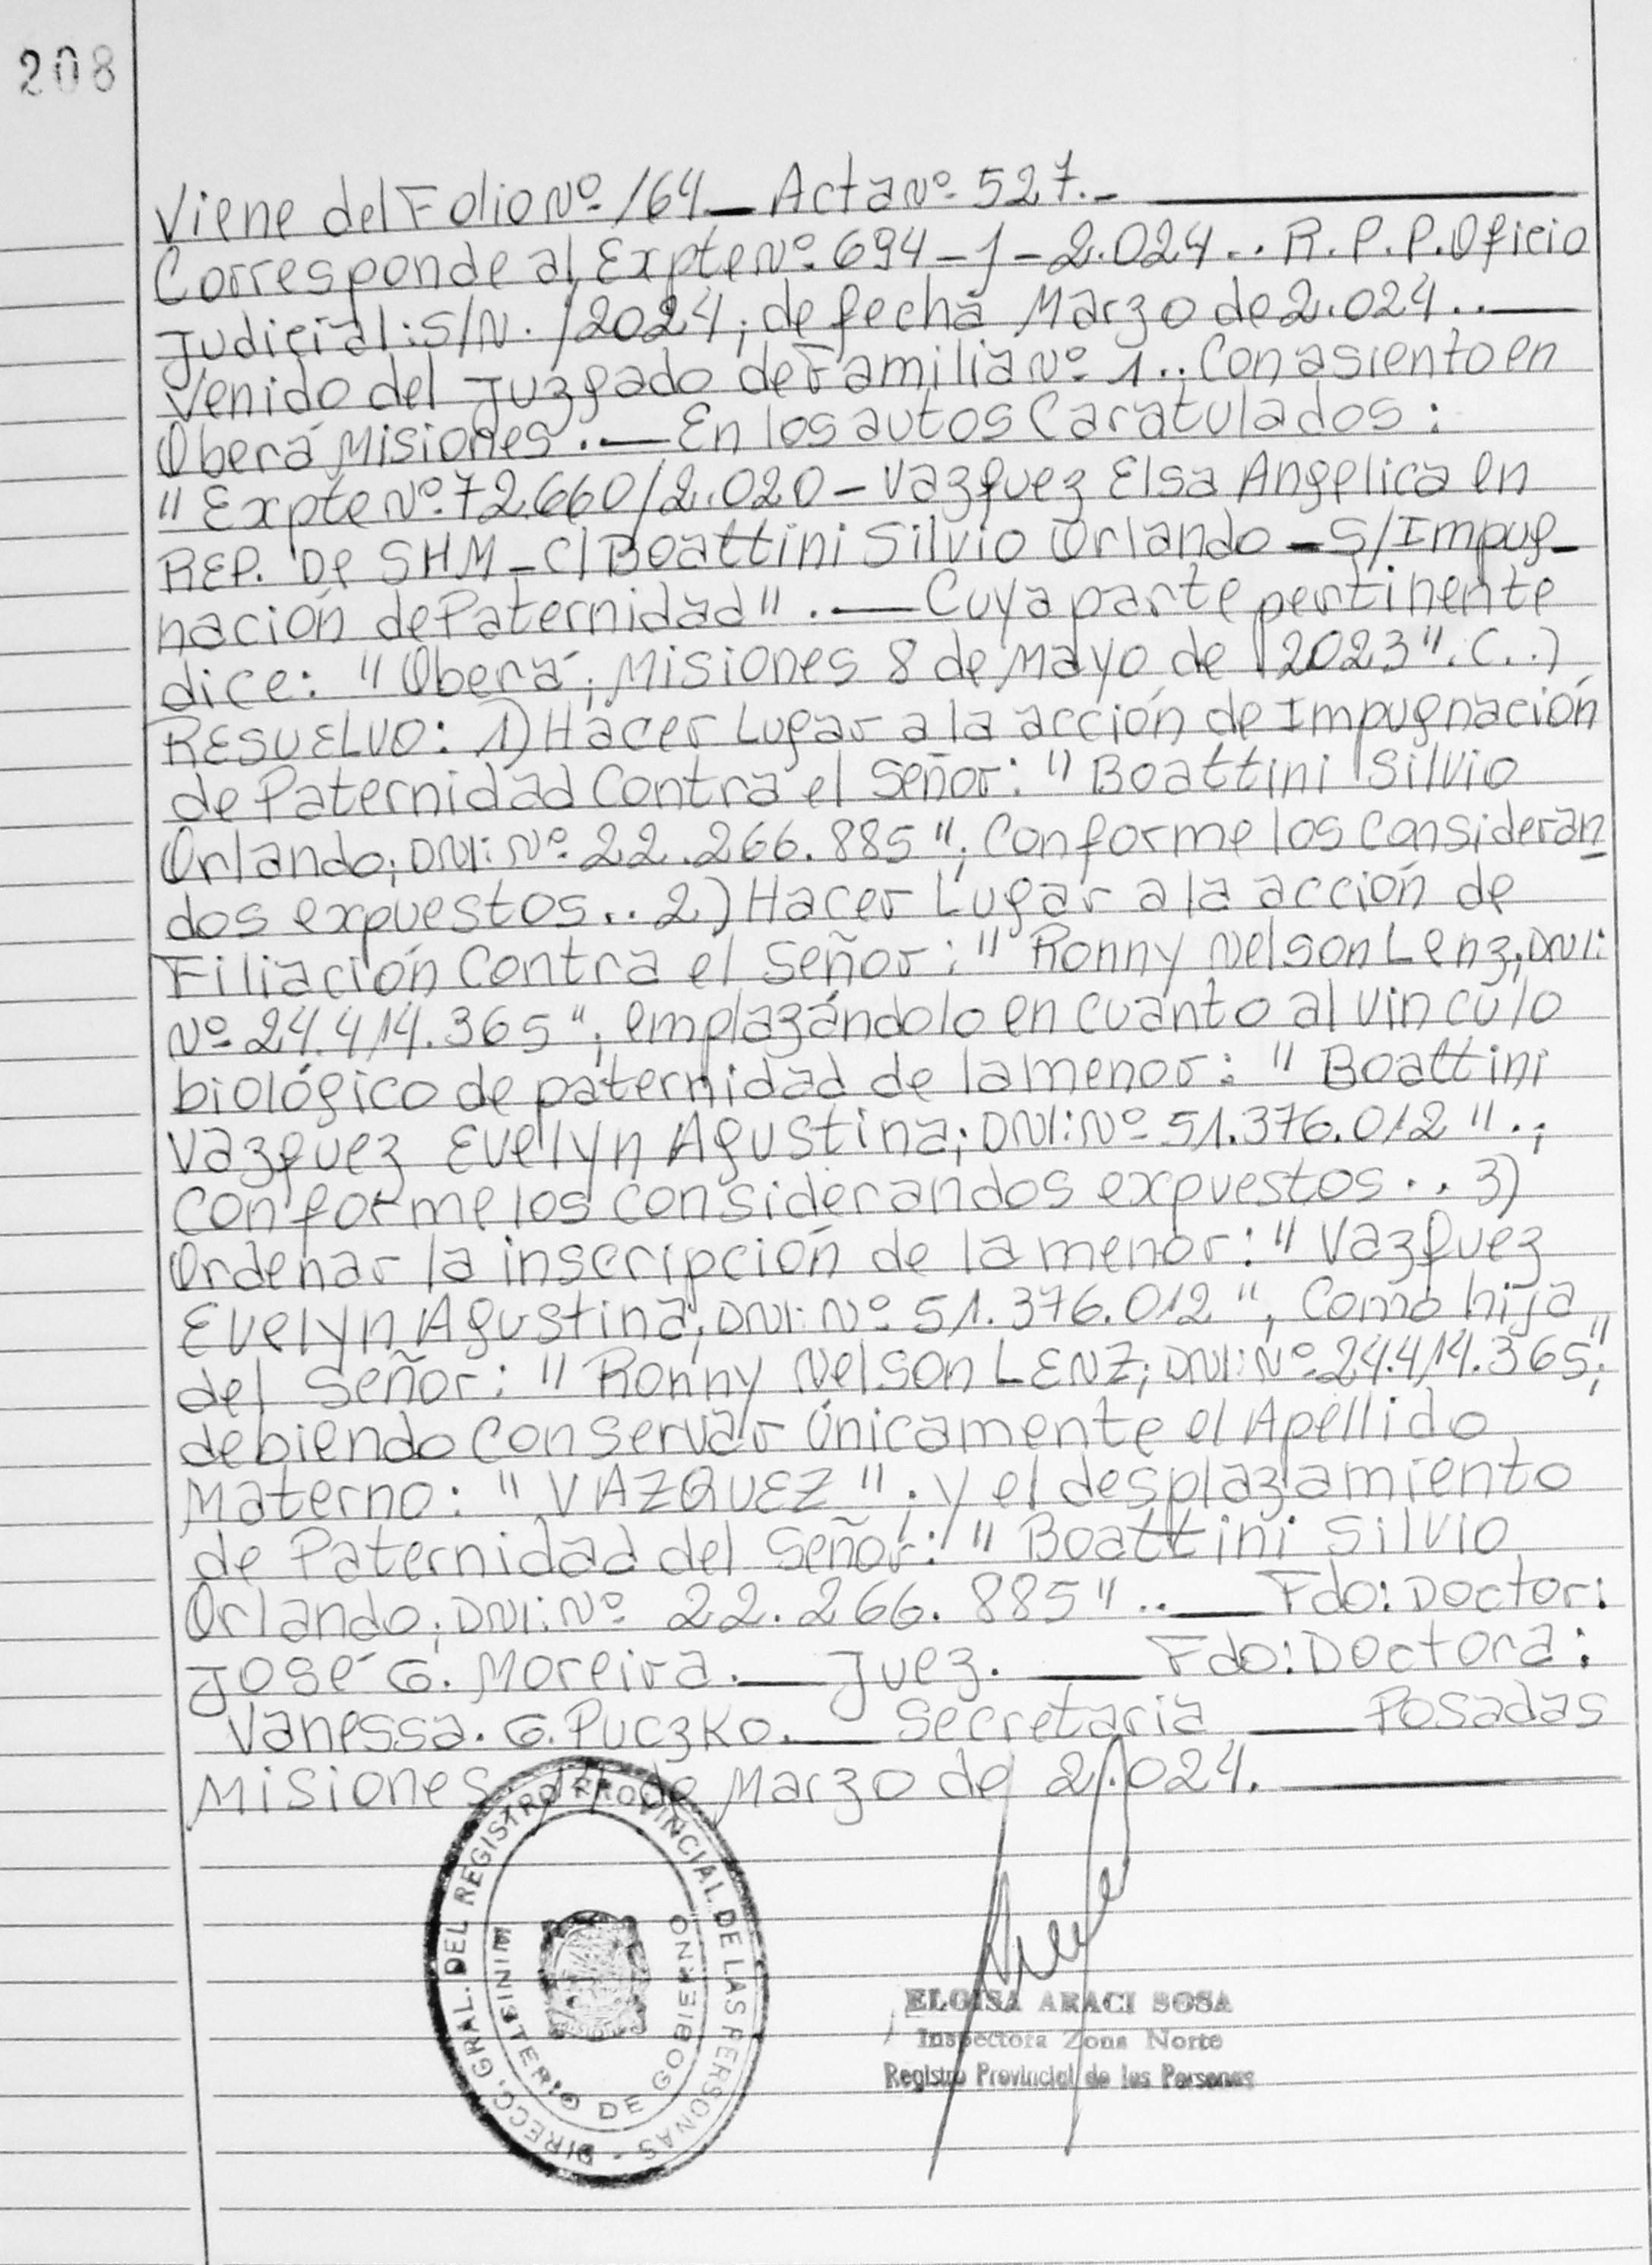 208
Viene del Folio Nº 164 — Acta Nº 527.-
Corresponde al Expte Nº 694-J-2.024.. R.P.P. Oficio
Judicial: S/N. /2024; de fecha Marzo de 2.024..
Venido del Juzgado de Familia Nº 1.. Con asiento en
Oberá Misiones. — En los autos Caratulados:
"Expte Nº 72.660/2.020 - Vazquez Elsa Angelica en
REP. De SHM - C/ Boattini Silvio Orlando - S/Impug-
nación de Paternidad". — Cuya parte pertinente
dice: "Oberá; Misiones 8 de Mayo de 2023". (..)
RESUELVO: 1) Hacer Lugar a la acción de Impugnación
de Paternidad Contra el Señor: "Boattini Silvio
Orlando; DNI: Nº 22.266.885"; Conforme los Consideran
dos expuestos.. 2) Hacer Lugar a la acción de
Filiación Contra el Señor: "Ronny Nelson Lenz; DNI:
Nº 24.414.365"; emplazándolo en cuanto al vinculo
biológico de paternidad de la menor: "Boattini
Vazquez Evelyn Agustina; DNI: Nº 51.376.012".;
Conforme los Considerandos expuestos.. 3)
Ordenar la inscripción de la menor: "Vazquez
Evelyn Agustina; DNI: Nº 51.376.012", Como hija
del Señor: "Ronny Nelson LENZ; DNI: Nº 24.414.365";
debiendo Conservar Únicamente el Apellido
Materno: "VAZQUEZ"; y el desplazamiento
de Paternidad del Señor: "Boattini Silvio
Orlando; DNI: Nº 22.266.885".. — Fdo: Doctor:
José G. Moreira. — Juez. — Fdo: Doctora:
Vanessa. G. Puczko. — Secretaria — Posadas
Misiones. de Marzo de 2.024.
DIRECC. GRAL. DEL REGISTRO PROVINCIAL DE LAS PERSONAS -
MINISTERIO DE GOBIERNO
ELOISA ARACI SOSA
Inspectora Zona Norte
Registro Provincial de las Personas